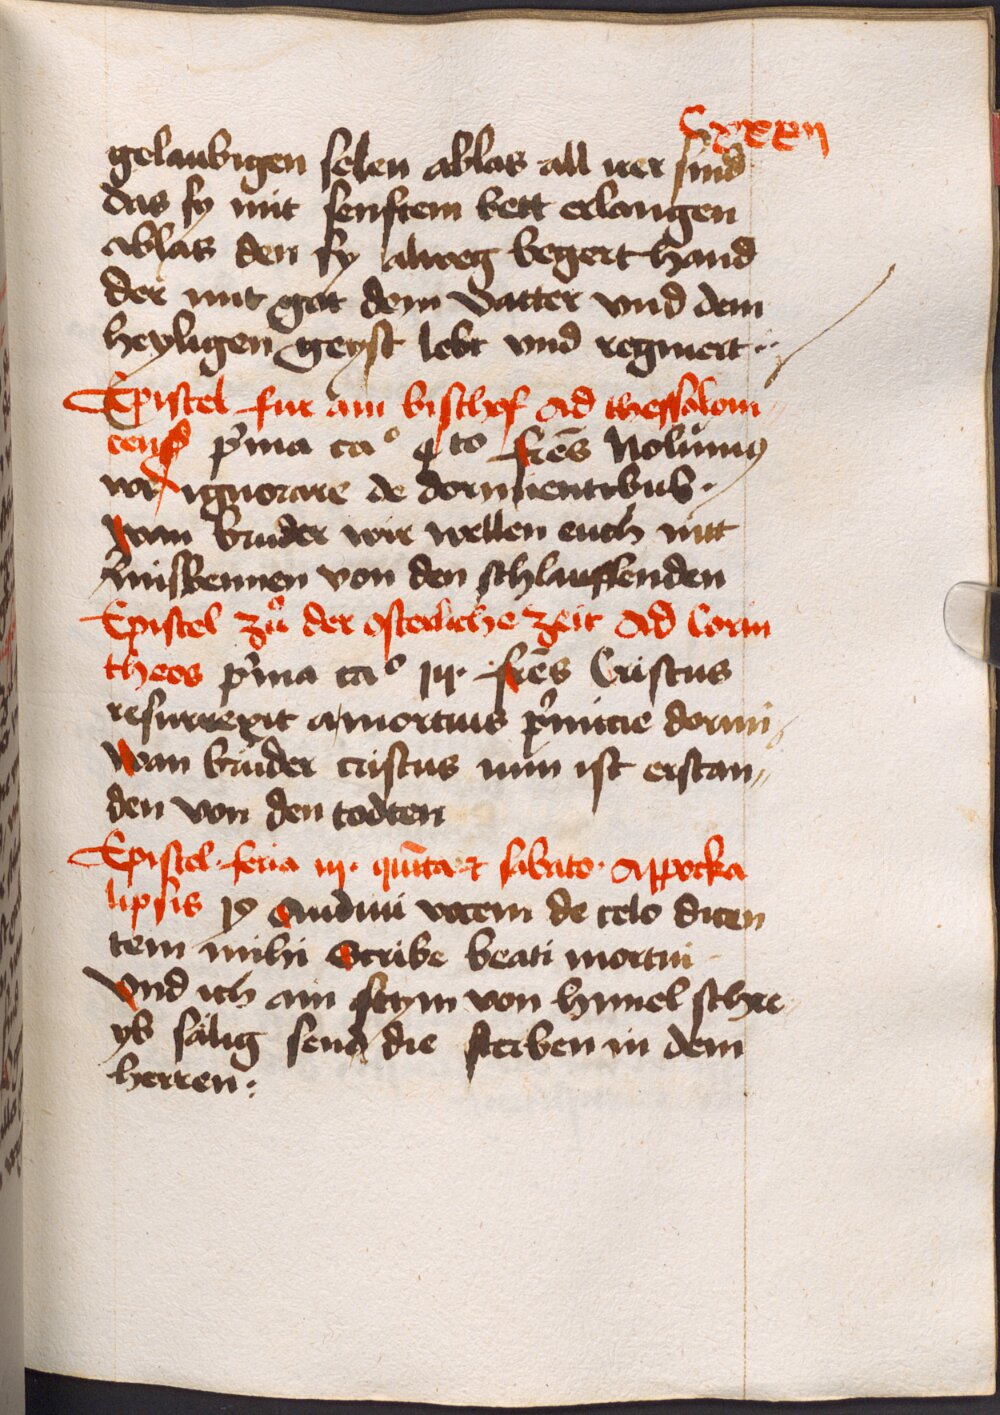 Cxxxii
gelaubigen selen ablas all irer sünd
das sy mit senftem bett erlangen
ablas den sy alweg begert hand
der mit got dem vatter vnd dem
heyligen geyst lebt vnd regniert
Epistel fur ain bischof ad thessaloni
cens p'ma ca° 4to frēs Nolumus
vos ignorare de dormientibus.
wan bruder wir wellen euch nitt
v'miskennen von den schlauffenden
Epistel zů der osterliche zeit ad Corin
theos p'ma ca° frēs Cristus
resurrexit a mortuis p'micie dormi
wan brüder cristus nun ist erstan
den von den todten
Epistel feria iii. quīta et sabato. appocka
lipsis Audiui vocem de celo dicen
tem mihi Scribe beati mortui
Vnd ich ain stym von himel schre
yb sälig send die sterben in dem
herren: